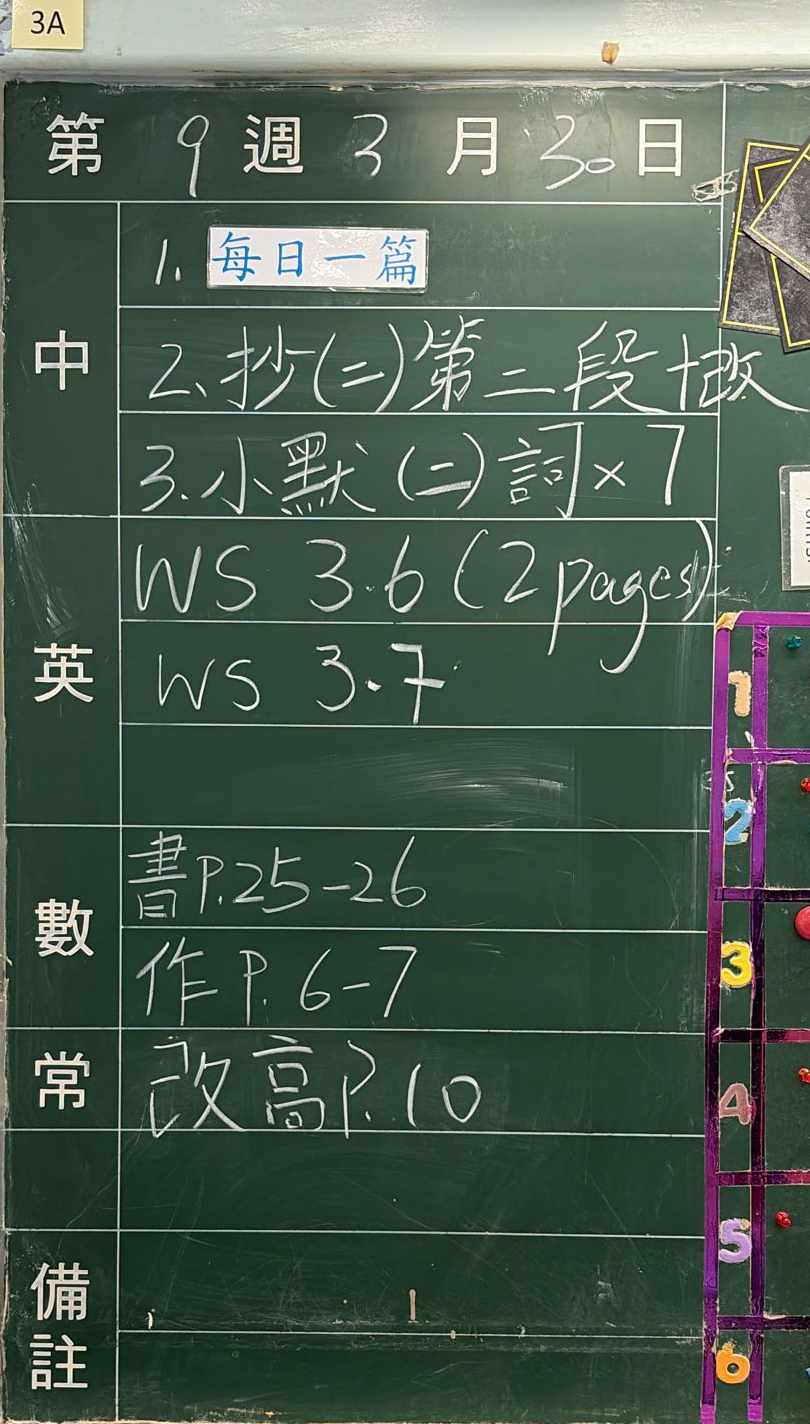 3A
第 9 週 3 月 30 日
中
1. 每日一篇
2. 抄(二)第二段+改
3. 小默(二)詞×7
英
WS 3.6 (2 pages)
WS 3.7
數
書P.25-26
作P.6-7
常
改高P.10
備註
1
2
3
4
5
6